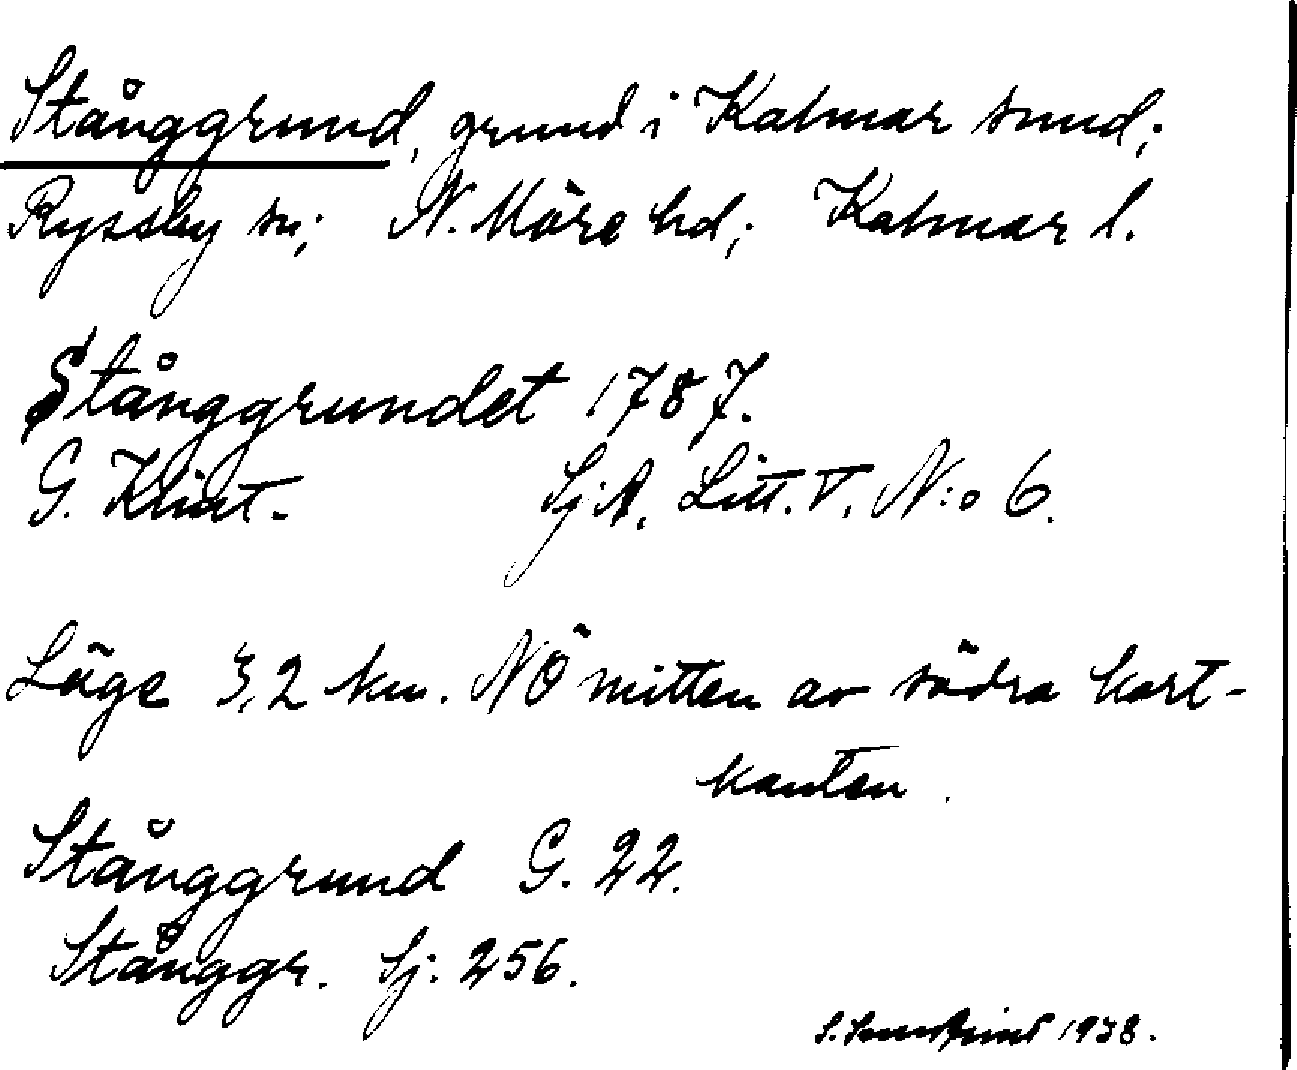 Stånggrund, grund i Kalmar sund;
Ryssby sn; N. Möre hd; Kalmar l.
Stånggrundet 1787.
G. Klint. Sj.A. Litt. V. N:o 6.
Läge 3,2 km. NÖ mitten av södra kart-
kanten.
Stånggrund G. 22.
Stånggr. Sj. 256.
S. 1938.